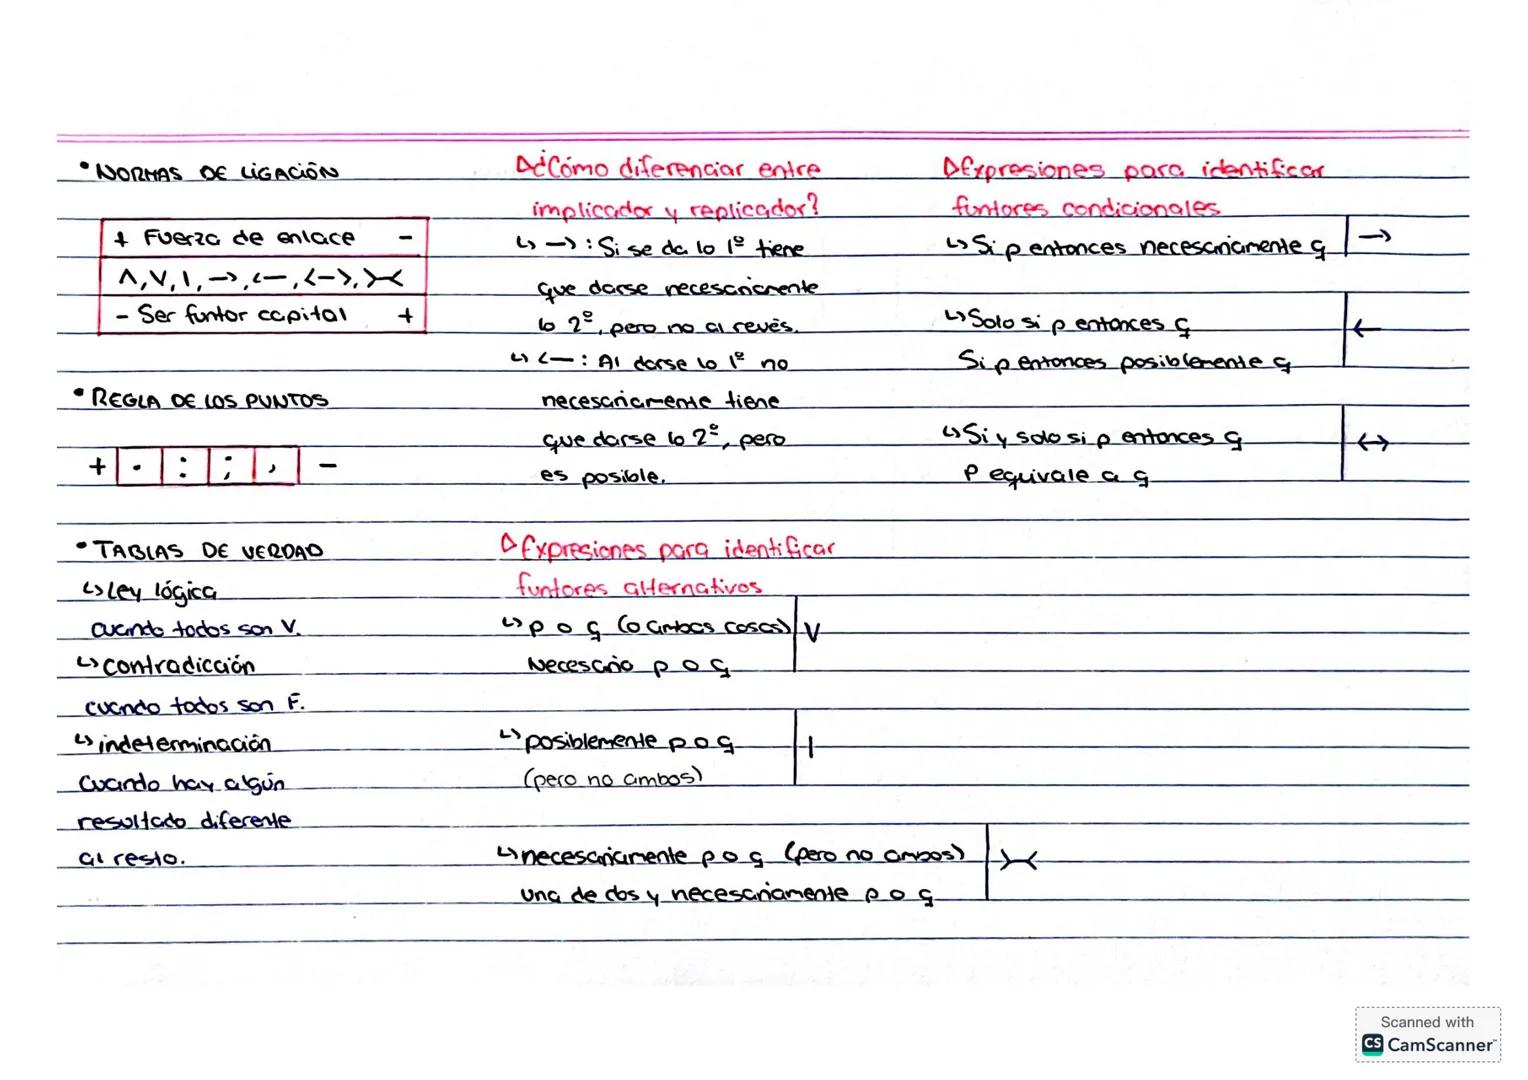 • NORMAS DE LIGACIÓN
+ Fuerza de enlace -
∧, ∨, |, →, ←, <->, >-<
- Ser funtor capital +
• REGLA DE LOS PUNTOS
+ . : ; , -
¿Cómo diferenciar entre
implicador y replicador?
↳ → : Si se da lo 1º tiene
que darse necesariamente
lo 2º, pero no al revés.
↳ ← : Al darse lo 1º no
necesariamente tiene
que darse lo 2º, pero
es posible.
Expresiones para identificar
funtores condicionales
↳ Si p entonces necesariamente q →
↳ Solo si p entonces q ←
Si p entonces posiblemente q
↳ Si y solo si p entonces q ↔
p equivale a q
• TABLAS DE VERDAD
↳ Ley lógica
cuando todos son V.
↳ contradicción
cuando todos son F.
↳ indeterminación
cuando hay algún
resultado diferente
al resto.
Expresiones para identificar
funtores alternativos
↳ p o q (o ambas cosas) ∨
Necesario p o q
↳ posiblemente p o q |
(pero no ambos)
↳ necesariamente p o q (pero no ambos) >-<
una de dos y necesariamente p o q
Scanned with
CS CamScanner